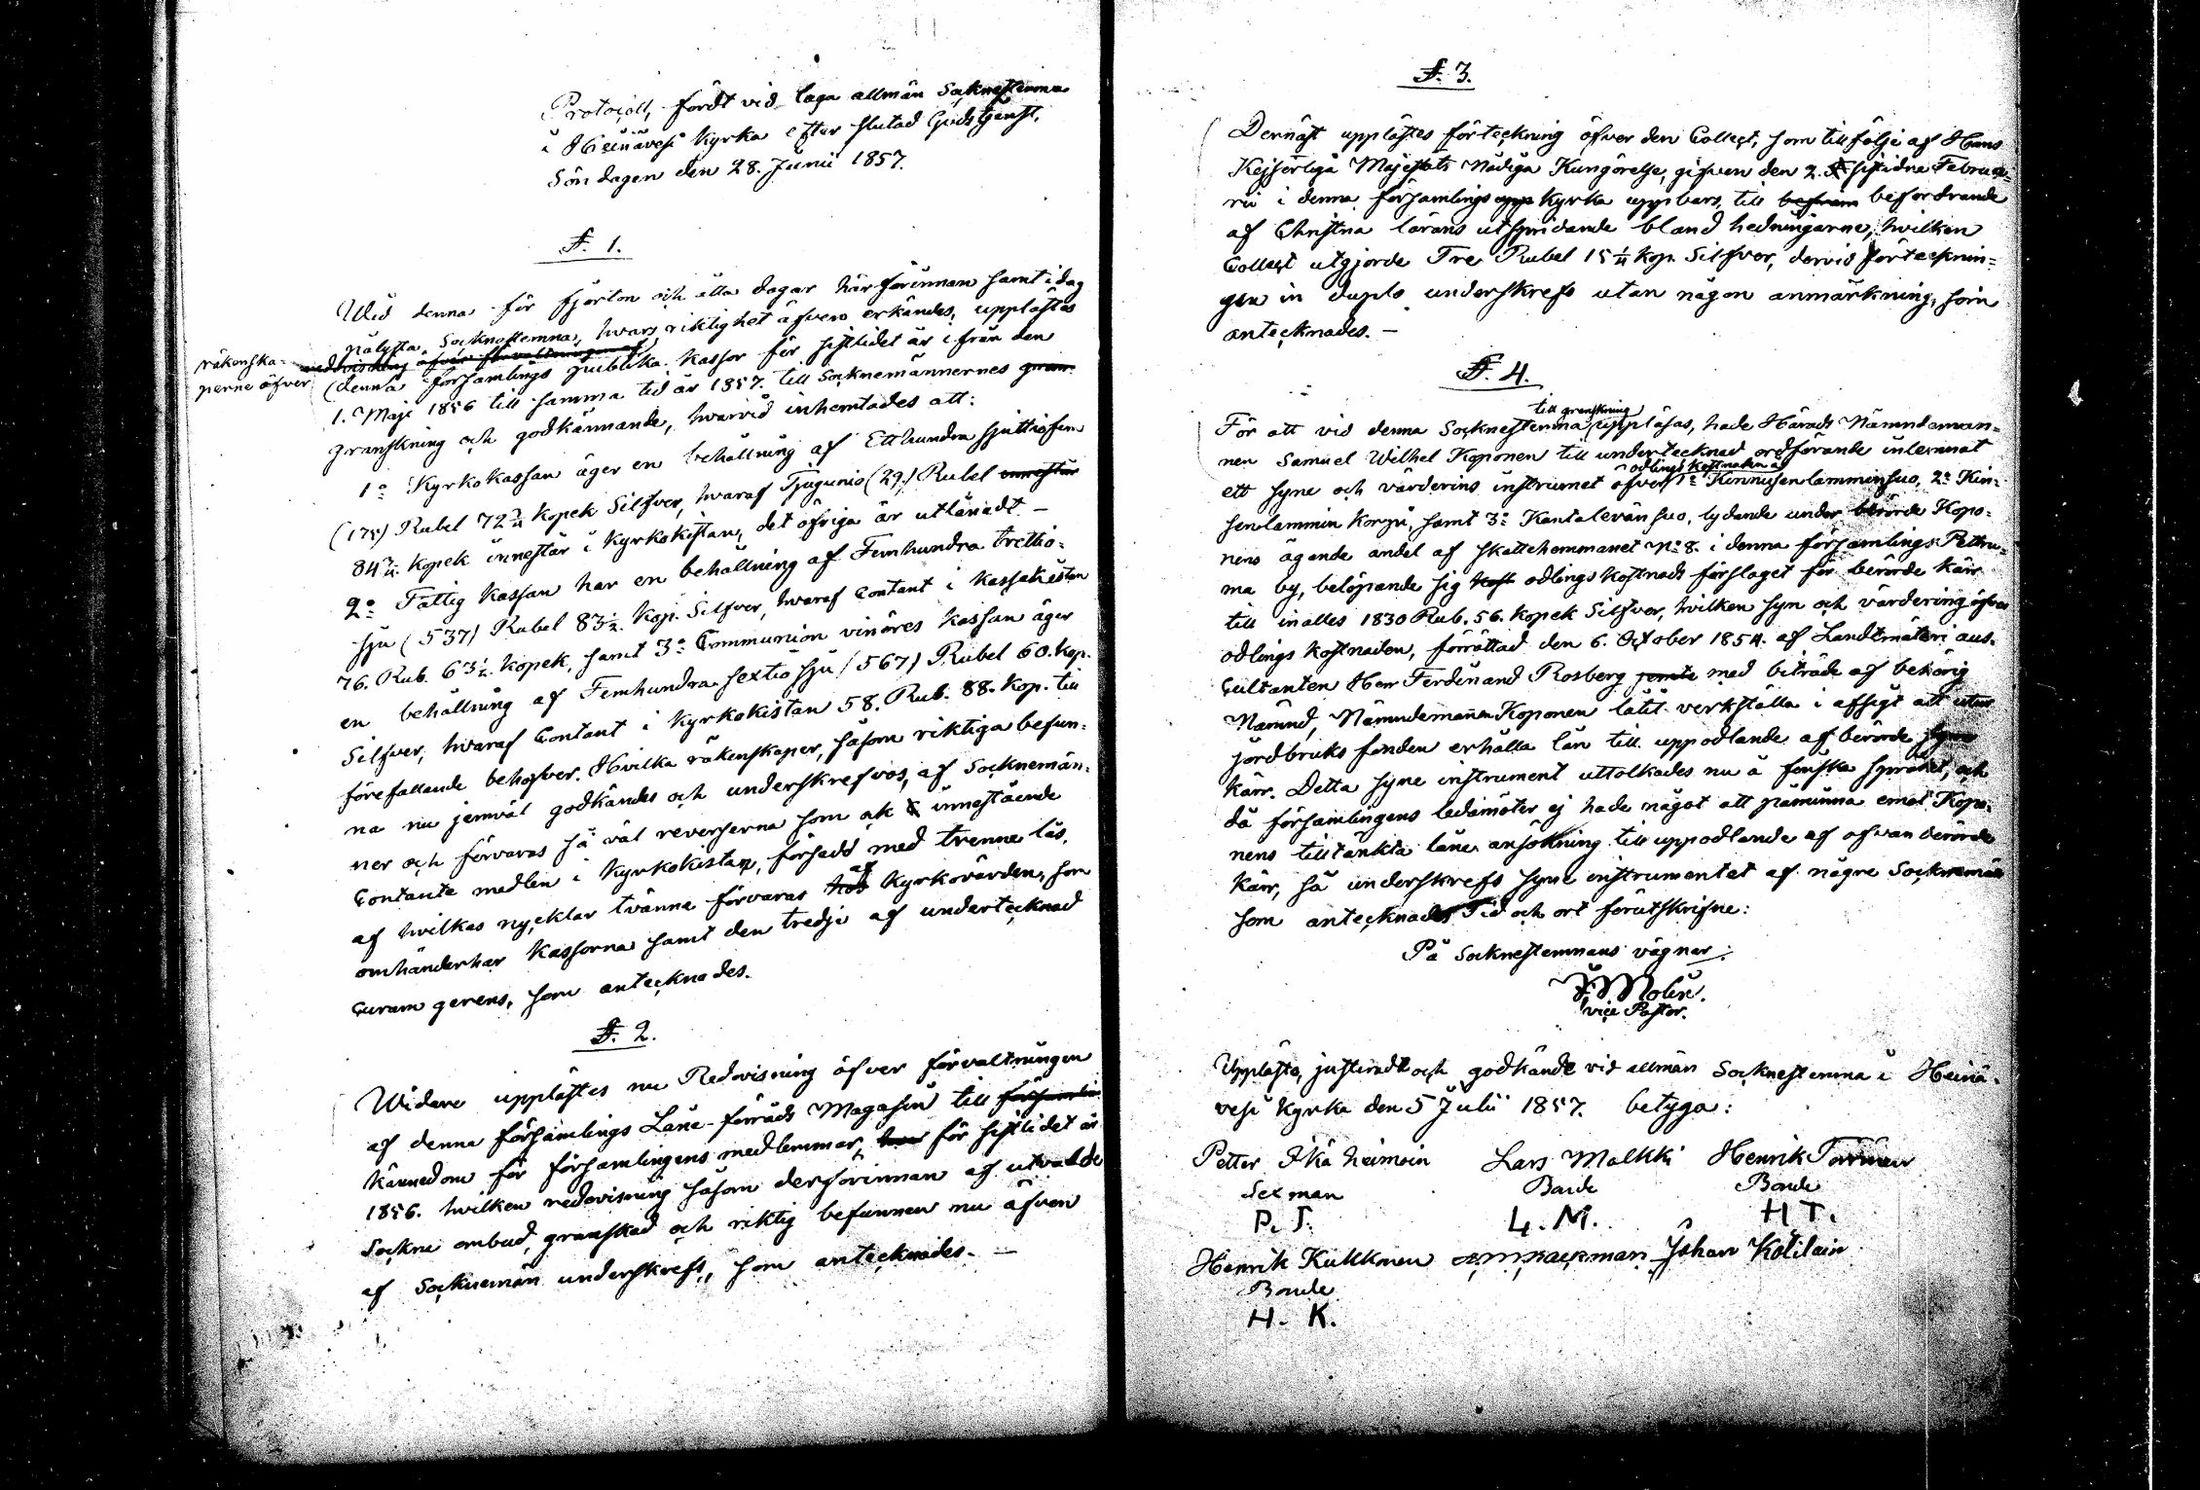 Protocoll, fördt vid laga allmän Socknestemma
i Heinävesi Kyrka efter slutad Gudstjenst,
Söndagen den 28. Junii 1857.
§. 1.
Wid denna för fjorton och åtta dagar härförinnan samt idag
pålysta Socknestemma, hvars riktighet äfven erkändes, upplästes
räkenska-
perne öfver
(denna församlings publika kassor för sistlidet år ifrån den
1. Maji 1856 till samma tid år 1857. till Socknemännernes
granskning och godkännande, hvarvid inhemtades att:
1o Kyrkokassan äger en behållning af Etthundra sjuttiofem
(175) Rubel 72 kopek Silfver, hvaraf Tjugunio (29) Rubel
84 kopek innestår i Kyrkokistan, det öfriga är utlånadt. -
2o Fattig kassan har en behållning af Femhundra trettio-
sju (537) Rubel 83½ Kop. Silfver, hvaraf Contant i kassakistan
76. Rub. 63½. kopek, samt 3o Communion vinöres kassan äger
en behållning af Femhundra sextiosju (567) Rubel 60. kop.
Silfver, hvaraf Contant i Kyrkokistan 58. Rub. 88. Kop. till
förefallande behofver. Hvilka räkenskaper, såsom riktiga befun-
na nu jemväl godkändes och underskrefvos, af Socknemän-
ner och förvaras så väl reverserna som ock innestående
Contanta medlen i Kyrkokistan, försedd med trenne lås,
af hvilkas nycklar tvänne förvaras af Kyrkovärden, som
omhänderhar kassorna samt den tredje af undertecknad
curam gerens, som antecknades.
§. 2.
Widare upplästes nu Redovisning öfver förvaltningen
af denna församlings Låne-förråds Magasin till
kännedom för församlingens medlemmar, för sistlidet år
1856. hvilken redovisning såsom derförinnan af utvalde
Sockne ombud, granskad och riktig befunnen nu äfven
af Socknemän underskrefs, som antecknades. -
§. 3.
Dernäst upplästes förteckning öfver den Collect, som till följe af Hans
Kejserliga Majestäts Nådiga Kungörelse, gifven den 2. sistidne Februa-
rii i denna församlings Kyrka uppbars, till befordrande
af Christna lärans utspridande bland hedningarne, hvilken
Collect utgjorde Tre Rubel 15 kop. Silfver, dervid förtecknin-
gen in duplo underskrefs utan någon anmärkning, som
antecknades. -
§. 4.
För att vid denna Socknestemma till granskning uppläsas, hade Härads Nämndeman-
nen Samuel Wilhel Koponen till undertecknad ordförande inlemnat
ett syne och värderins instrument öfver odlings kostnaden af 1o Kinnusenlamminsuo, 2o Kin-
senlammin Korpi, samt 3o Kantalevänsuo, lydande under Kopo-
nens ägande andel af skattehemmanet No 8. i denna församlings Pettru-
ma by, belöpande sig odlings kostnads förslaget för berörde kärr
till inalles 1830 Rub. 56. kopek Silfver, hvilken syn och värdering öfver
odlings kostnaden, förrättad den 6. October 1854. af Landtmäteri aus-
cultanten Herr Ferdinand Rosberg med biträde af behörig
Nämnd, Nämndemannen Koponen låtit verkställa i afsigt att utur
jordbruks fonden erhålla lån till uppodlande af berörde
kärr. Detta syne instrument uttolkades nu å finska språket, och
då församlingens ledamöter ej hade något att påminna emot Kopo-
nens tilltänkta låne ansökning till uppodlande af ofvan berörde
Kärr, så underskrefs syne instrumentet af några Socknemän
som antecknades Tid och ort förutskrifne:
På Socknestemmans vägnar:
Molin.
vice Pastor.
Uppläst, justeradt och godkändt vid allmän Socknestemma i Heinä-
vesi Kyrka den 5 Julii 1857. betyga:
Petter Ikäheimoin Lars Malkki Henrik Torvinen
Sexman Bonde Bonde
P. I. L. M. H T.
Henrik Kukkonen Johan Kotilain
Bonde
H. K.